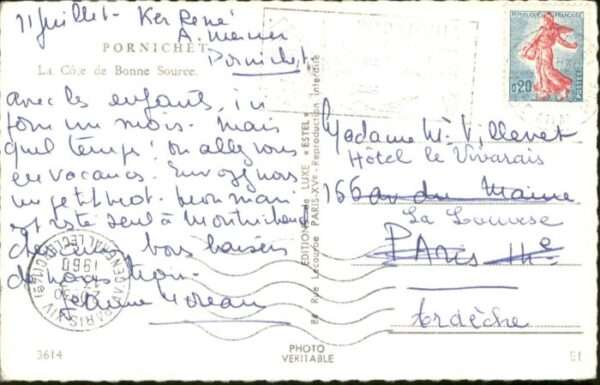 11 juillet - Ker René
A. Mermoz
Pornichet
PORNICHET
La Côte de Bonne Source.
avec les enfants, ici
pour un mois. Mais
quel temps ! où allez vous
en vacances. Envoyez nous
un petit mot. Mon mari
est resté seul à
bons baisers
de nous tous.
Moreau
EDITIONS de LUXE "ESTEL"
Rue Lecourbe PARIS-XVe - Reproduction interdite
REPUBLIQUE FRANÇAISE
0,20
POSTES
Madame M. Villevet
Hôtel le Vivarais
166 av du Maine
La Louvesc
PARIS 14e
Ardèche
PARIS XIV
1960
3614
PHOTO
VERITABLE